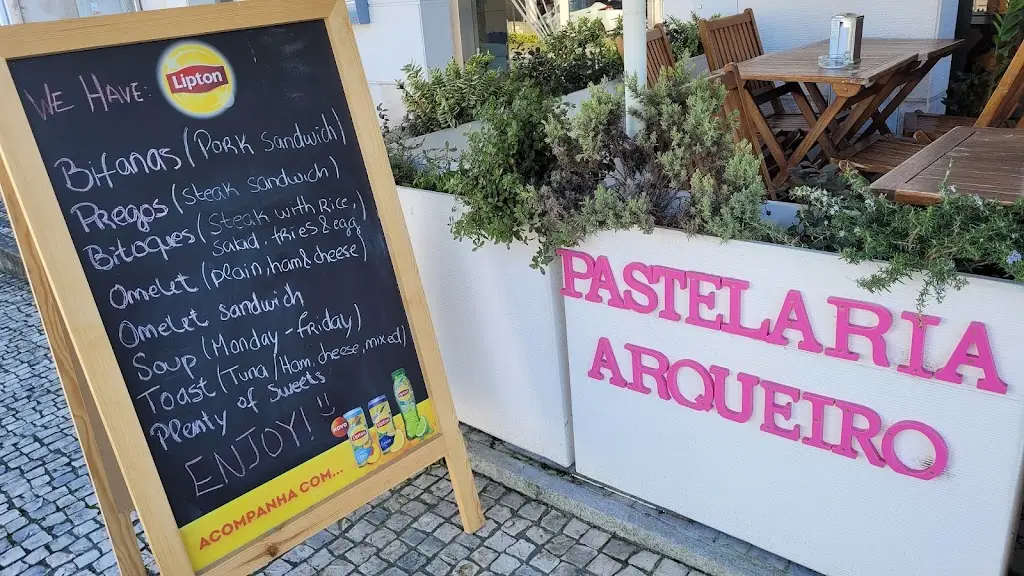 WE HAVE:
Lipton
Bifanas (Pork Sandwich)
Pregos (Steak sandwich)
Bitoques (Steak with Rice,
Salad, fries & egg)
Omelet (plain, ham & cheese)
Omelet sandwich
Soup (Monday - friday)
Toast (Tuna/Ham, cheese, mixed)
Plenty of Sweets
ENJOY! :)
NOVO
ACOMPANHA COM...
PASTELARIA
ARQUEIRO